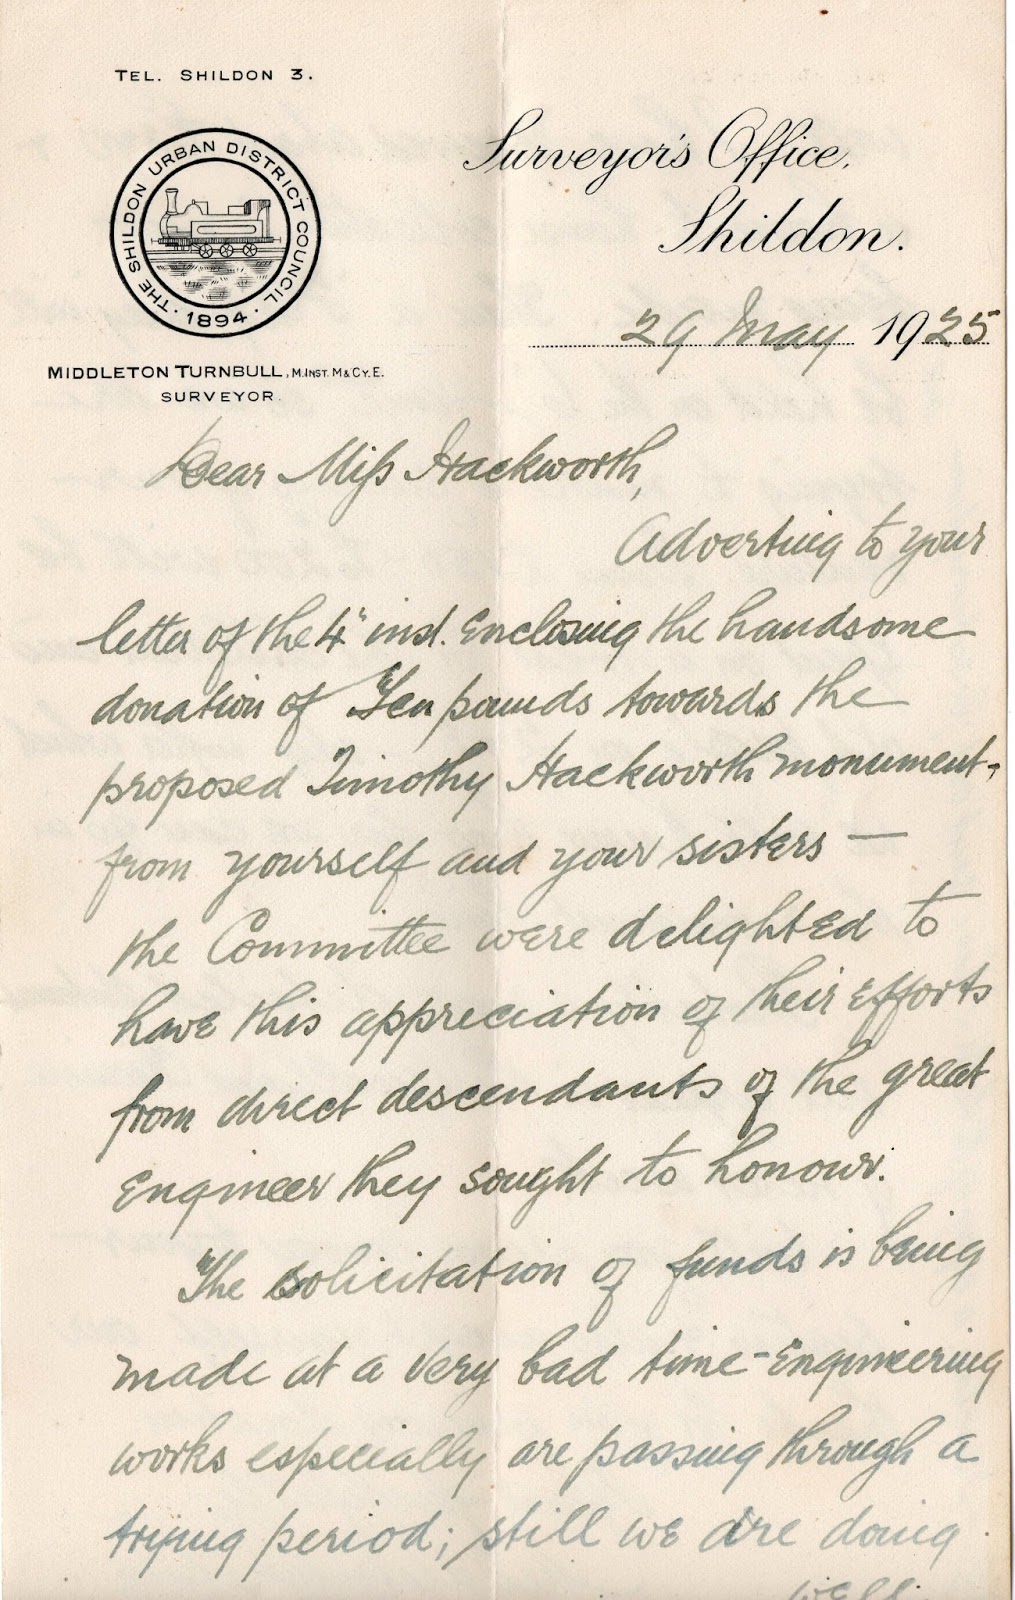 TEL. SHILDON 3.
THE SHILDON URBAN DISTRICT COUNCIL
· 1894 ·
MIDDLETON TURNBULL, M.INST. M & CY. E.
SURVEYOR.
Surveyor's Office,
Shildon.
29 May 1925
Dear Miss Hackworth,
Adverting to your
letter of the 4" inst. Enclosing the handsome
donation of Ten pounds towards the
proposed Timothy Hackworth monument -
from yourself and your sisters —
the Committee were delighted to
have this appreciation of their efforts
from direct descendants of the great
Engineer they sought to honour.
The solicitation of funds is being
made at a very bad time - Engineering
works especially are passing through a
trying period; still we are doing
well